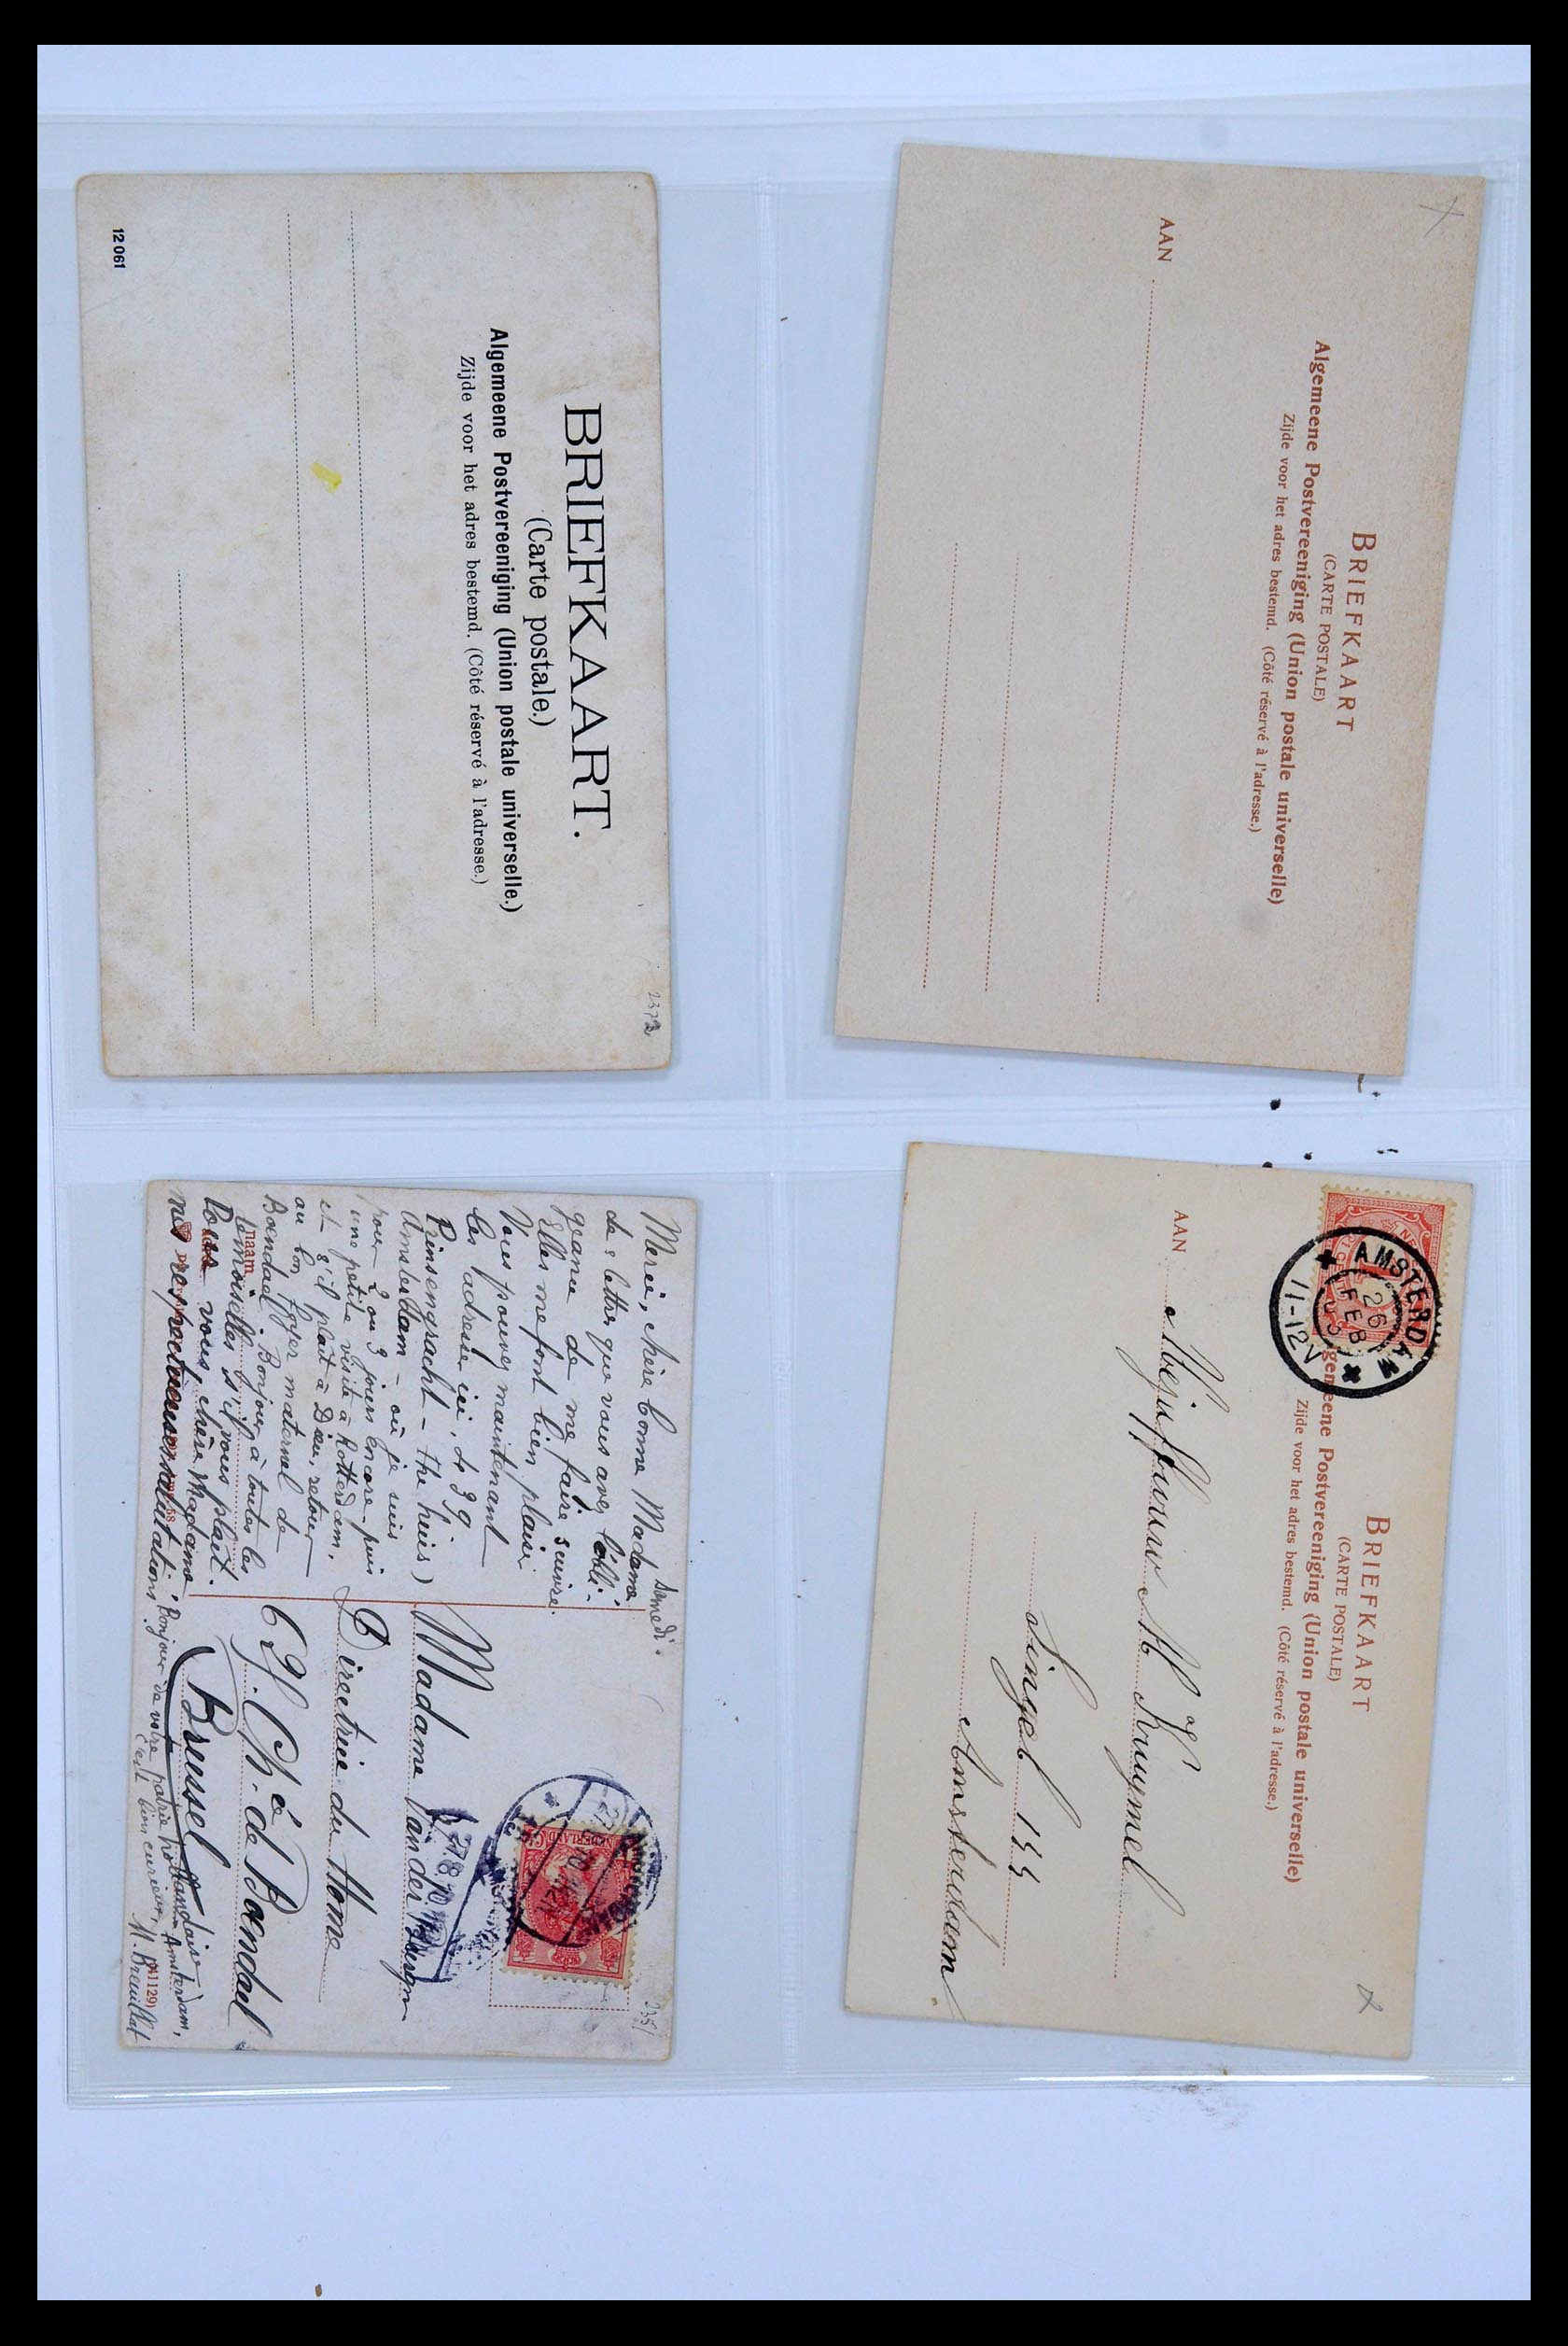 BRIEFKAART.
(Carte postale.)
Algemeene Postvereeniging (Union postale universelle.)
Zijde voor het adres bestemd. (Côté réservé à l'adresse.)
12 061
2372
BRIEFKAART
(CARTE POSTALE)
Algemeene Postvereeniging (Union postale universelle)
Zijde voor het adres bestemd. (Côté réservé à l'adresse.)
AAN
Samedi.
Merci, chère bonne Madame,
des lettres que vous avez l'obli-
geance de me faire suivre.
Elles me font bien plaisir
Vous pouvez maintenant
les adresser ici, 439
Prinsengracht - the huis)
Amsterdam - où je suis
pour 2 ou 3 jours encore - puis
une petite visite à Rotterdam,
et s'il plaît à Dieu, retour
au bon foyer maternel de
Boendael Bonjour à toutes les
demoiselles s'il vous plaît.
Pour vous, chère Madame
mes respectueuses salutations.
naam
Bonjour de votre patrie hollandaise Amsterdam,
c'est bien curieux,
M. Breuillat
Madame Van der Bergen
Directrice du Home
29. Ch. ée de Boendael
Brussel
NEDERLAND
27.8.10
41129)
2351
BRIEFKAART
(CARTE POSTALE)
gemeene Postvereeniging (Union postale universelle)
Zijde voor het adres bestemd. (Côté réservé à l'adresse.)
AMSTERDAM
26
FEB
03
11-12V
AAN
Mejufvrouw M Kruymel
Singel 133
Amsterdam